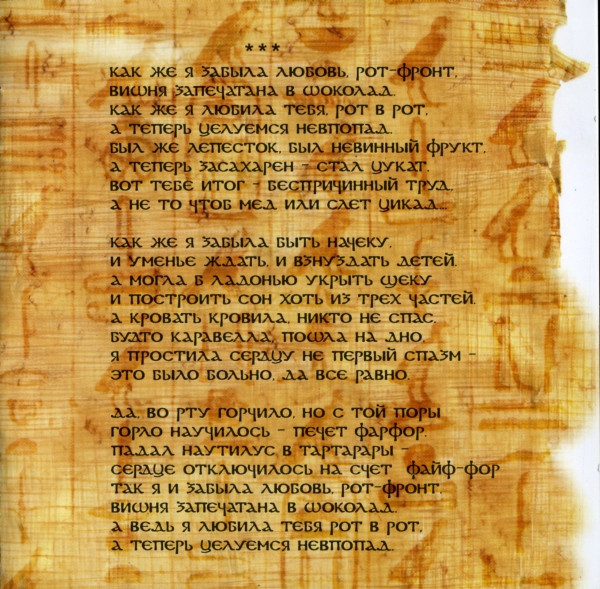 ***
КАК ЖЕ Я ЗАБЫЛА ЛЮБОВЬ, РОТ-ФРОНТ,
ВИШНЯ ЗАПЕЧАТАНА В ШОКОЛАД.
КАК ЖЕ Я ЛЮБИЛА ТЕБЯ, РОТ В РОТ,
А ТЕПЕРЬ ЦЕЛУЕМСЯ НЕВПОПАД.
БЫЛ ЖЕ ЛЕПЕСТОК, БЫЛ НЕВИННЫЙ ФРУКТ,
А ТЕПЕРЬ ЗАСАХАРЕН - СТАЛ ЦУКАТ.
ВОТ ТЕБЕ ИТОГ - БЕСПРИЧИННЫЙ ТРУД,
А НЕ ТО ЧТОБ МЕД ИЛИ СЛЕТ ЦИКАД...

КАК ЖЕ Я ЗАБЫЛА БЫТЬ НАЧЕКУ,
И УМЕНЬЕ ЖДАТЬ, И ВЗНУЗДАТЬ ДЕТЕЙ.
А МОГЛА Б ЛАДОНЬЮ УКРЫТЬ ЩЕКУ
И ПОСТРОИТЬ СОН ХОТЬ ИЗ ТРЕХ ЧАСТЕЙ.
А КРОВАТЬ КРОВИЛА, НИКТО НЕ СПАС,
БУДТО КАРАВЕЛЛА, ПОШЛА НА ДНО,
Я ПРОСТИЛА СЕРДЦУ НЕ ПЕРВЫЙ СПАЗМ -
ЭТО БЫЛО БОЛЬНО, ДА ВСЕ РАВНО,

ДА, ВО РТУ ГОРЧИЛО, НО С ТОЙ ПОРЫ
ГОРЛО НАУЧИЛОСЬ - ПЕЧЕТ ФАРФОР,
ПАДАЛ НАУТИЛУС В ТАРТАРАРЫ -
СЕРДЦЕ ОТКЛЮЧИЛОСЬ НА СЧЕТ ФАЙФ-ФОР
ТАК Я И ЗАБЫЛА ЛЮБОВЬ, РОТ-ФРОНТ,
ВИШНЯ ЗАПЕЧАТАНА В ШОКОЛАД.
А ВЕДЬ Я ЛЮБИЛА ТЕБЯ РОТ В РОТ,
А ТЕПЕРЬ ЦЕЛУЕМСЯ НЕВПОПАД.